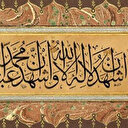 اشهد ان لا اله الا الله واشهد ان محمدا عبد